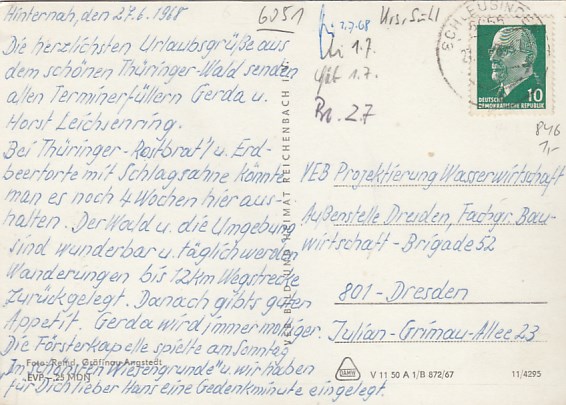 Hinternah, den 27.6.1968
Die herzlichsten Urlaubsgrüße aus
dem schönen Thüringer-Wald senden
allen Terminerfüllern Gerda u.
Horst Leichsenring.
Bei Thüringer-Rostbrat'l u. Erd-
beertorte mit Schlagsahne könnte
man es noch 4 Wochen hier aus-
halten. Der Wald u. die Umgebung
sind wunderbar u. täglich werden
Wanderungen bis 12 km Wegstrecke
zurückgelegt. Danach gibts guten
Appetit. Gerda wird immer molliger.
Die Försterkapelle spielte am Sonntag
"Im schönsten Wiesengrunde" u. wir haben
für Dich lieber Hans eine Gedenkminute eingelegt.
Foto: Reind, Gräfinau-Angstedt
EVP - 25 MDN
VEB BILD UND HEIMAT REICHENBACH
6051
1.7.68
1.7.
1.7.
2.7
SCHLEUSINGEN
10
DEUTSCHE
DEMOKRATISCHE REPUBLIK
846
1,-
VEB Projektierung Wasserwirtschaft
Außenstelle Dresden, Fachgr. Bau-
wirtschaft - Brigade 52
801 - Dresden
Julian-Grimau-Allee 23
V 11 50 A 1/B 872/67
11/4295